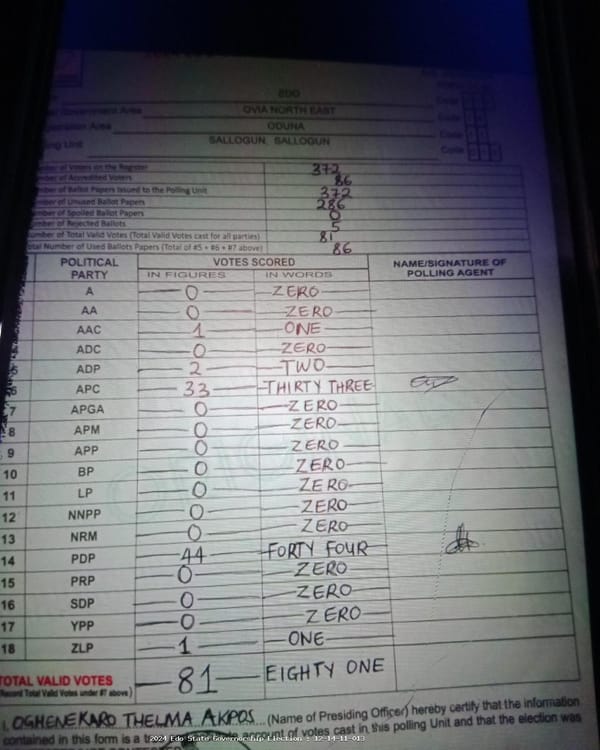 EDO
Government Area OVIA NORTH EAST
Area ODUNA
Unit SALLOGUN, SALLOGUN
Code
Code
Code
Code
Number of Voters on the Register 372
Number of Accredited Voters 86
Number of Ballot Papers Issued to the Polling Unit 372
Number of Unused Ballot Papers 286
Number of Spoiled Ballot Papers 0
Number of Rejected Ballots 5
Number of Total Valid Votes (Total Valid Votes cast for all parties) 81
Total Number of Used Ballots Papers (Total of #5 + #6 + #7 above) 86
POLITICAL PARTY VOTES SCORED NAME/SIGNATURE OF POLLING AGENT
IN FIGURES IN WORDS
A 0 ZERO
AA 0 ZERO
AAC 1 ONE
ADC 0 ZERO
5 ADP 2 TWO
6 APC 33 THIRTY THREE
7 APGA 0 ZERO
8 APM 0 ZERO
9 APP 0 ZERO
10 BP 0 ZERO
11 LP 0 ZERO
12 NNPP 0 ZERO
13 NRM 0 ZERO
14 PDP 44 FORTY FOUR
15 PRP 0 ZERO
16 SDP 0 ZERO
17 YPP 0 ZERO
18 ZLP 1 ONE
TOTAL VALID VOTES 81 EIGHTY ONE
(Record Total Valid Votes under #7 above)
I, OGHENEKARO THELMA AKPOS (Name of Presiding Officer) hereby certify that the information
contained in this form is a account of votes cast in this polling Unit and that the election was
2024 Edo State Governorship Election : 12-14-11-013